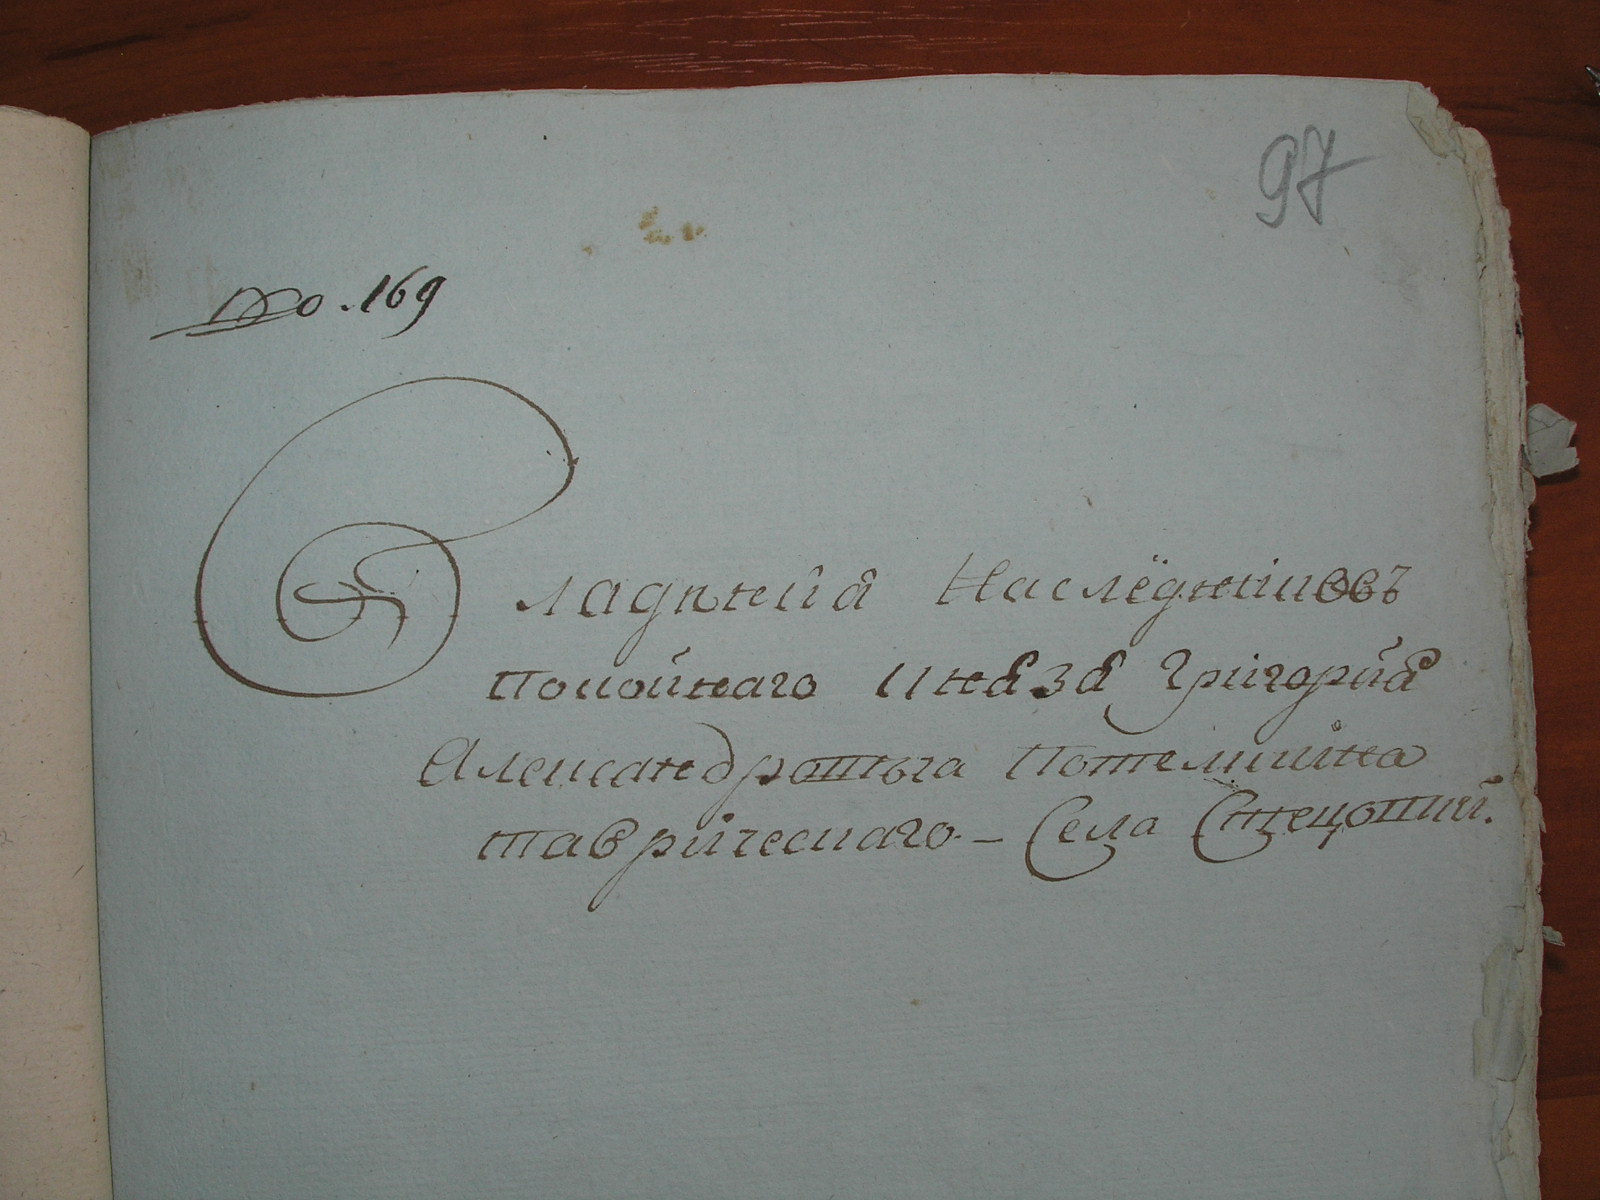 97
No. 169
Владѣнія Наслѣдниковъ
покойнаго Князя Григорія
Александровича Потемкина
таврическаго. — Села Стецовки.